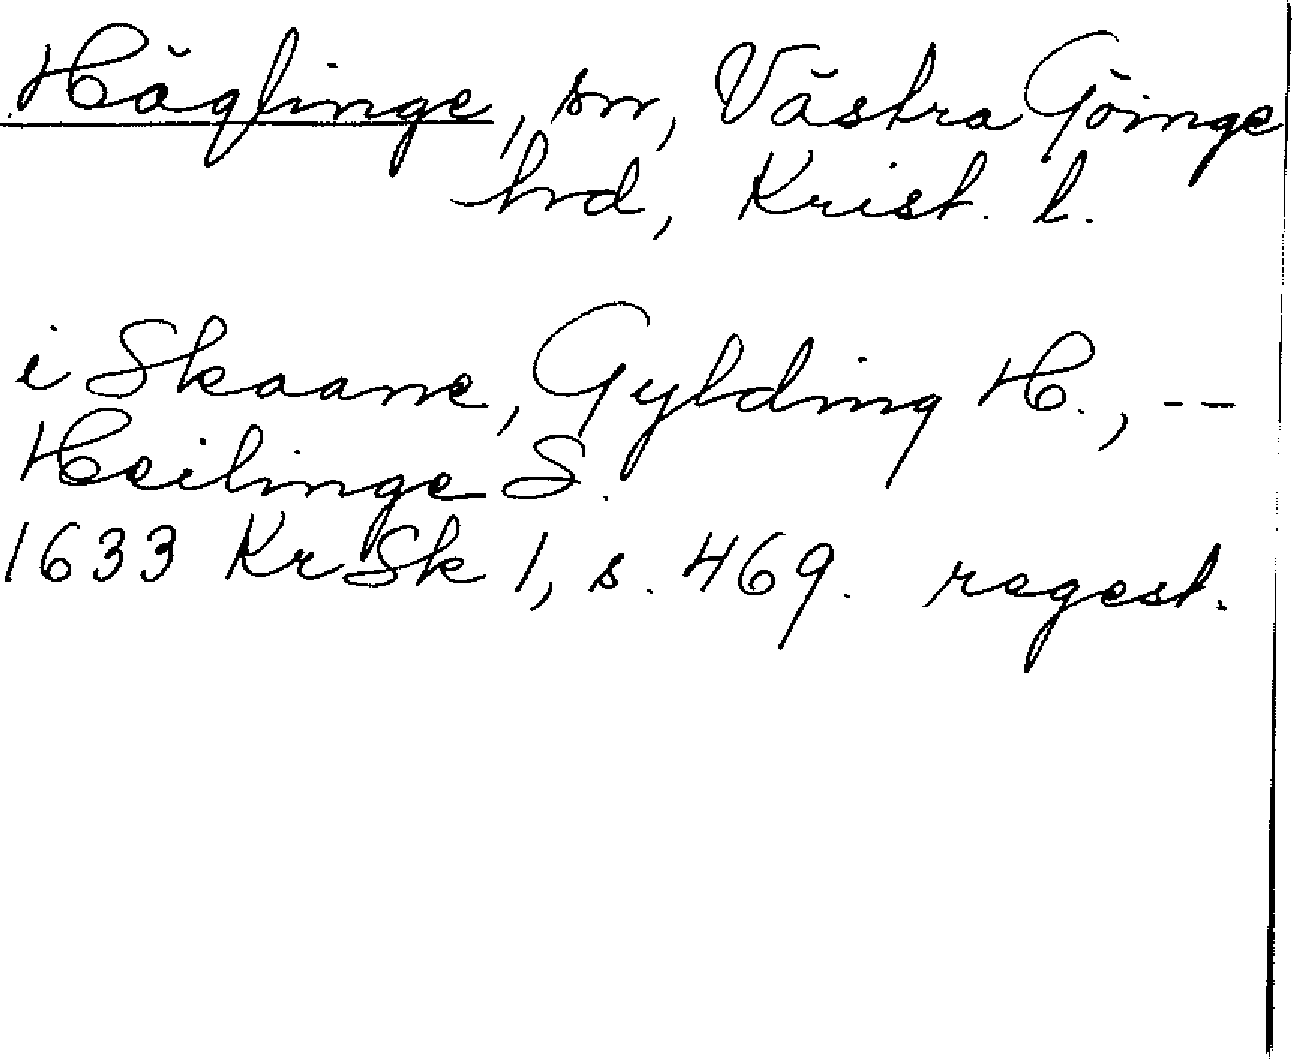 Häglinge, sn, Västra Göinge
hrd, Krist. l.
i Skaane, Gylding H., --
Heilinge S.
1633 KrSk 1, s. 469. regest.